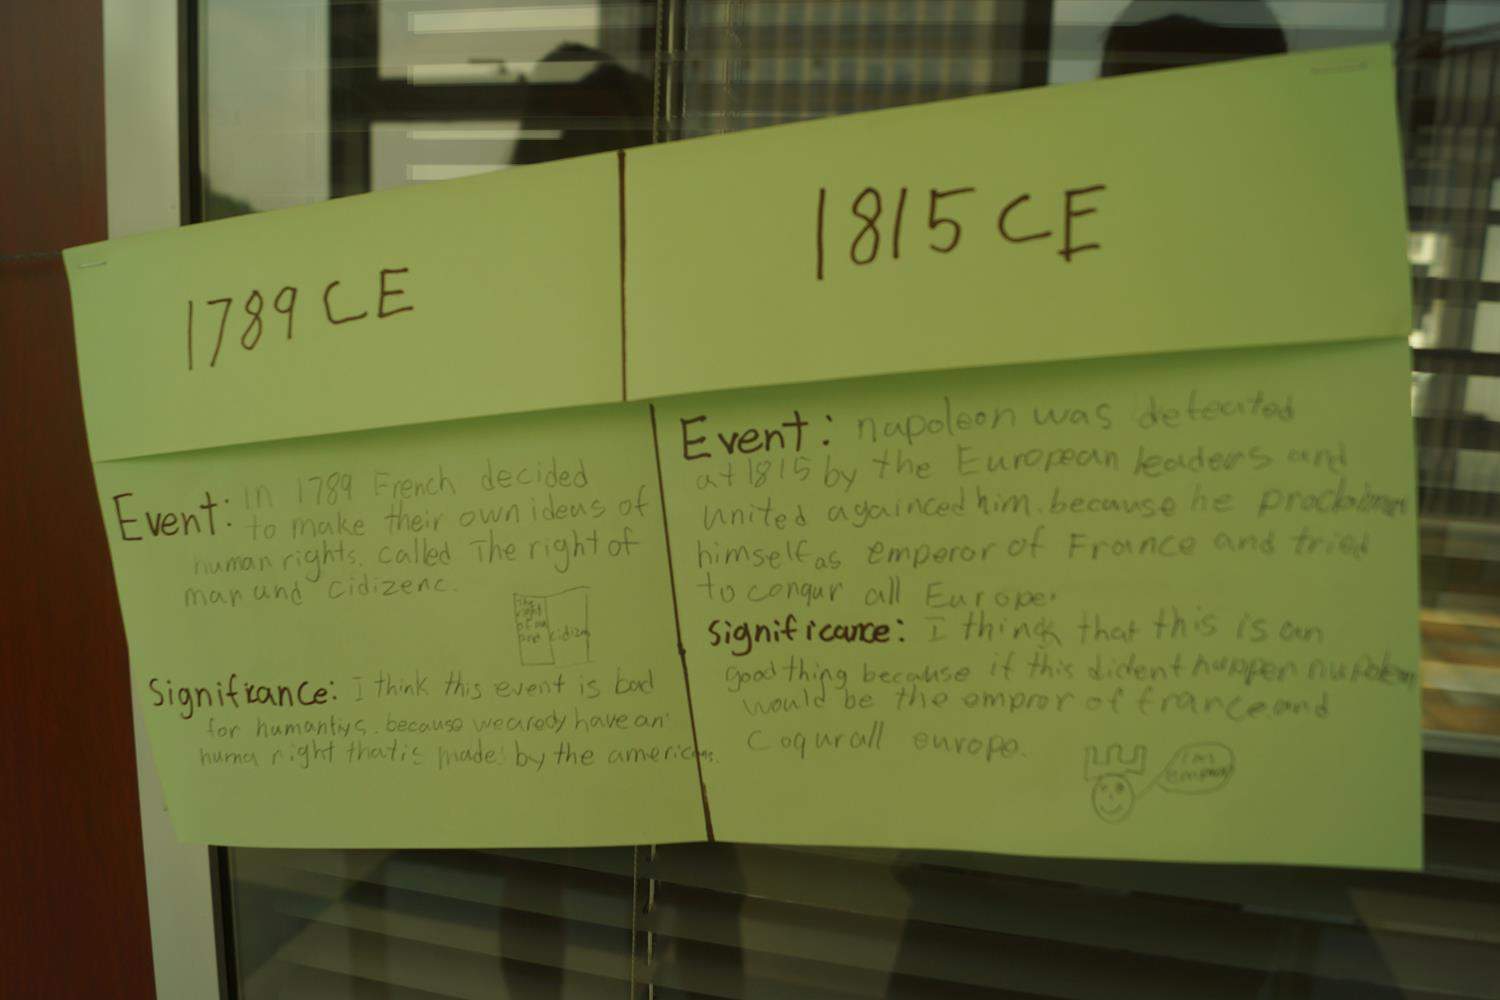 1789 CE
Event: in 1789 French decided
to make their own ideas of
human rights. called The right of
man and cidizenc.
The
right
of
cidizn
Significance: I think this event is bad
for humantys. because wearedy have an
huma right thatis made by the americans.
1815 CE
Event: napoleon was defeated
at 1815 by the European leaders and
united againced him. because he proclaimen
himself as emperor of France and tried
to conqur all Europe.
Significance: I think that this is an
good thing because if this dident happen napoleon
would be the empror of france.and
coqurall europe.
I'm